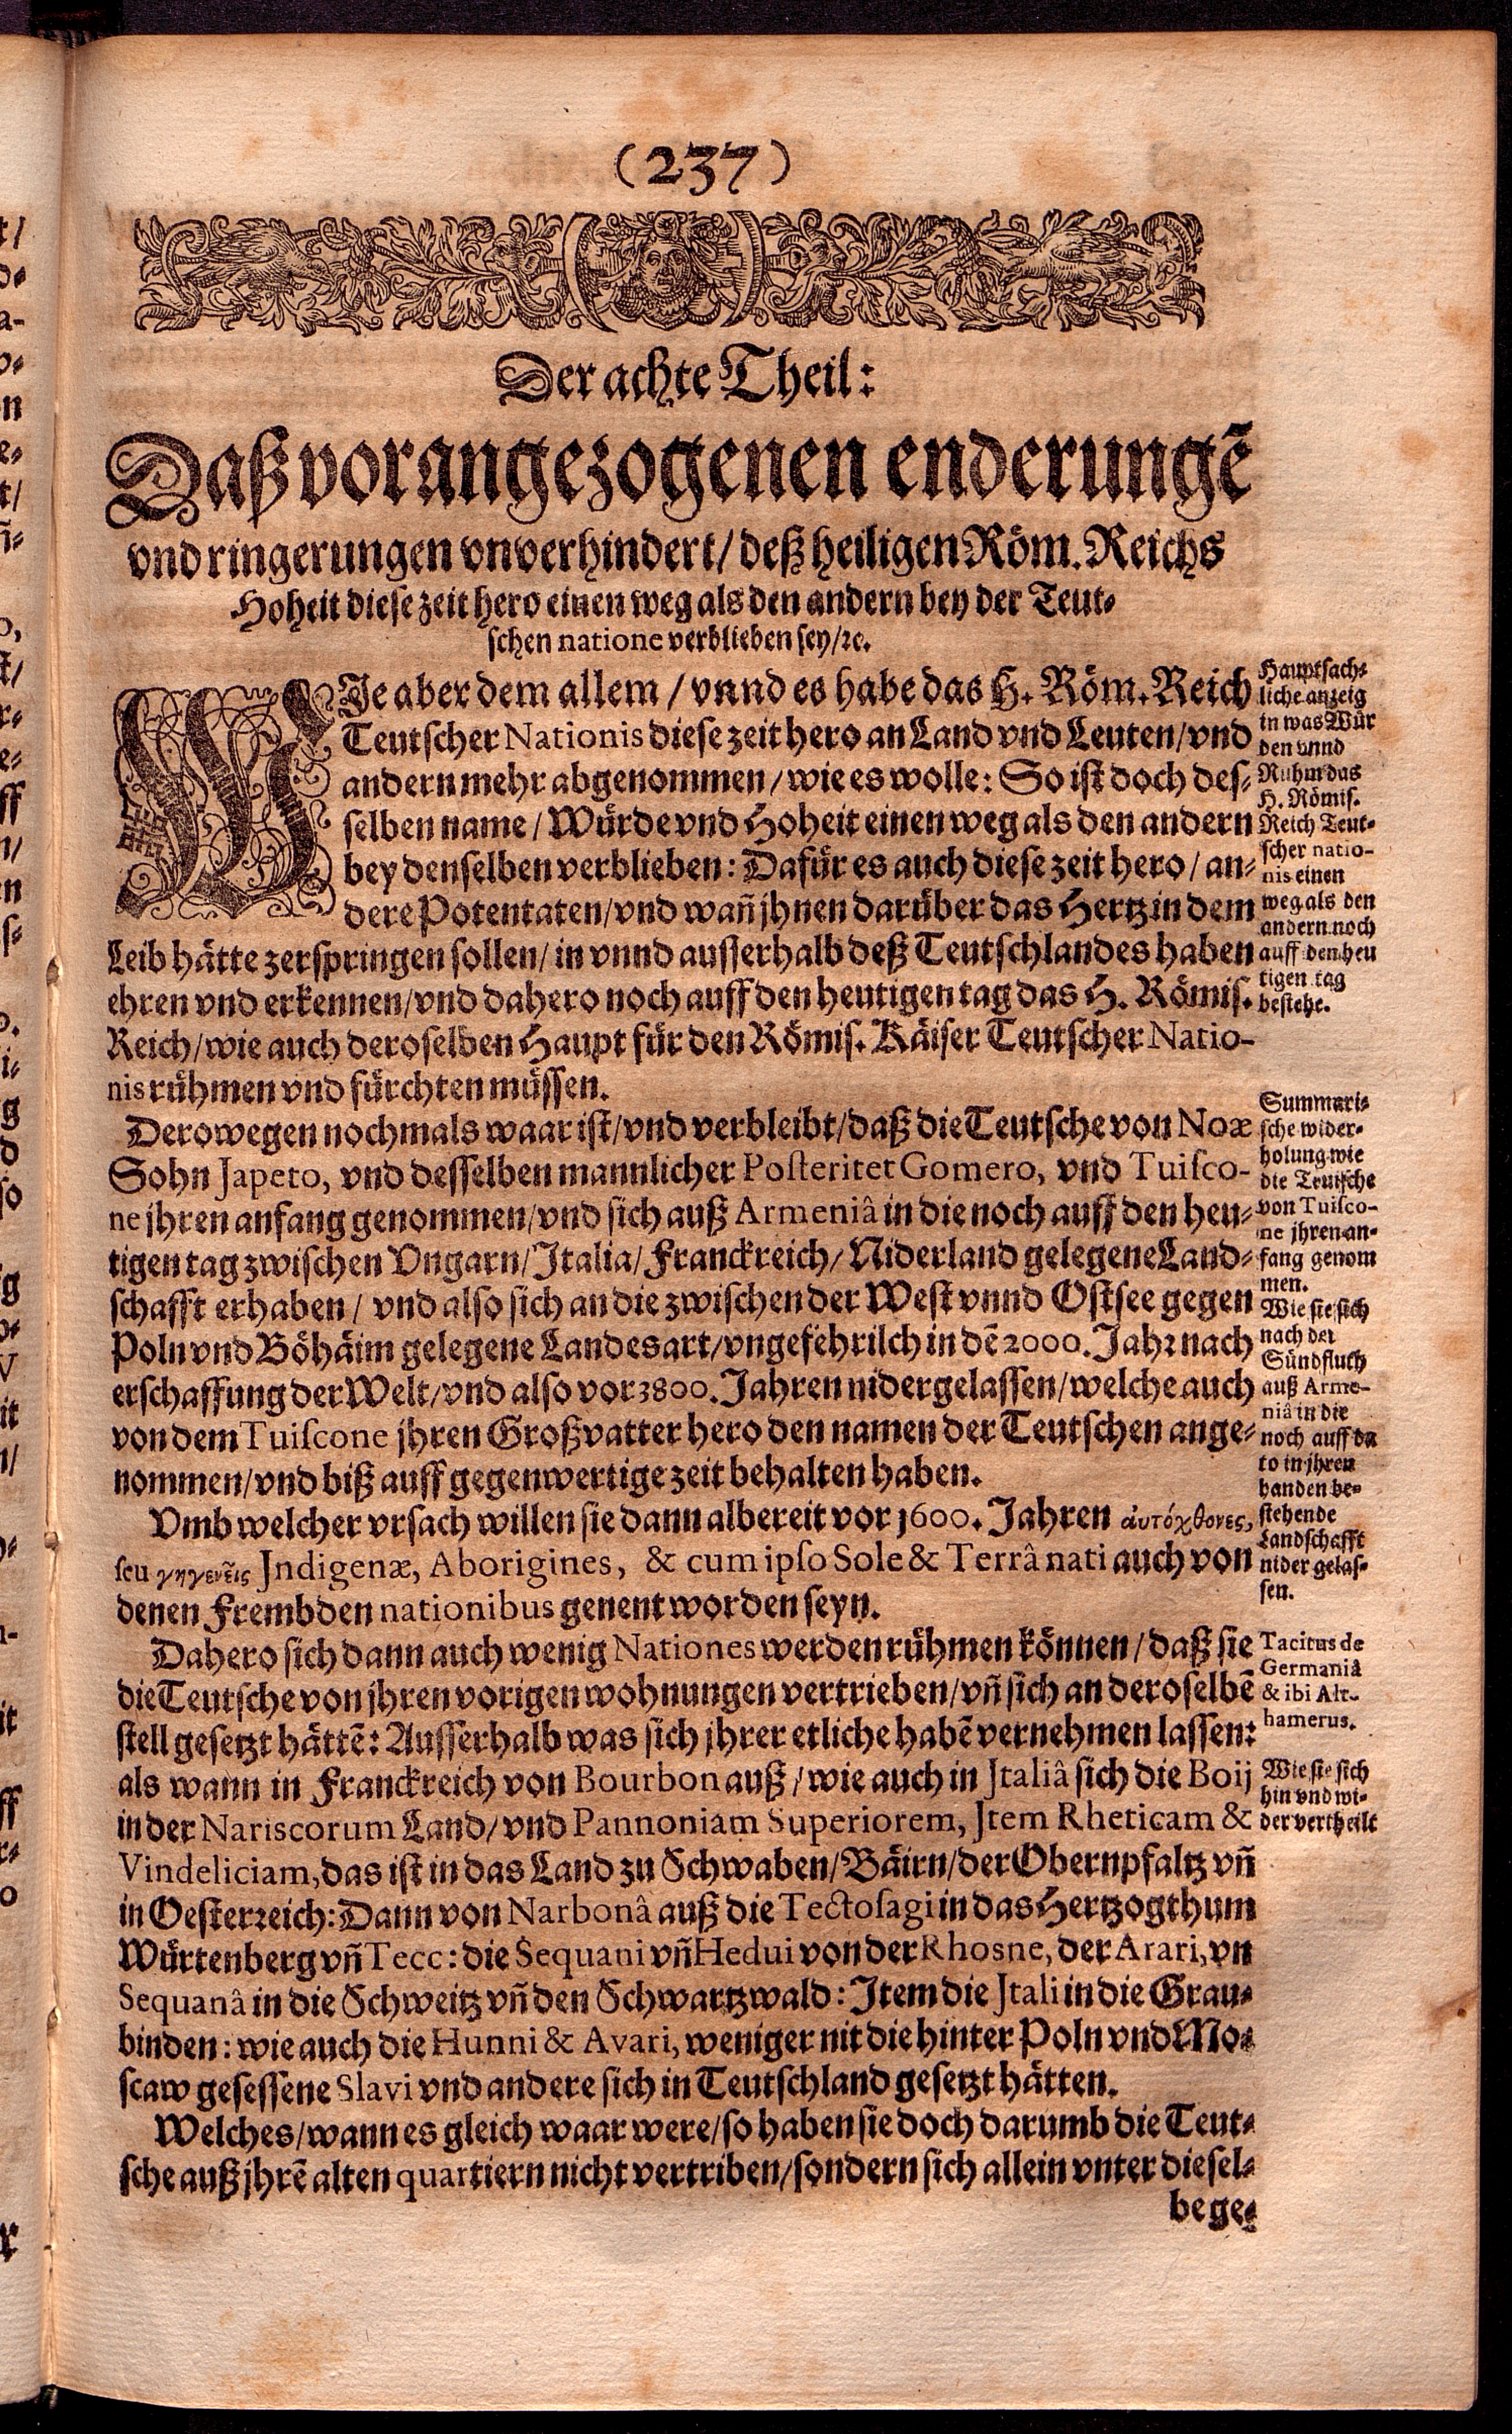 (237)
Der achte Theil:
Daß vorangezogenen enderungẽ
vnd ringerungen vnverhindert/ deß heiligen Röm. Reichs
Hoheit diese zeit hero einen weg als den andern bey der Teut-
schen natione verblieben sey/ꝛc.
WIe aber dem allem / vnnd es habe das H. Röm. Reich
Teutscher Nationis diese zeit hero an Land vnd Leuten/vnd
andern mehr abgenommen/wie es wolle: So ist doch des-
selben name/ Würde vnd Hoheit einen weg als den andern
bey denselben verblieben: Dafür es auch diese zeit hero/ an-
dere Potentaten/vnd wañ jhnen darüber das Hertz in dem
Leib hätte zerspringen sollen/ in vnnd ausserhalb deß Teutschlandes haben
ehren vnd erkennen/vnd dahero noch auff den heutigen tag das H. Römis.
Reich/wie auch deroselben Haupt für den Römis. Käiser Teutscher Natio-
nis rühmen vnd fürchten müssen.
Hauptsach-
liche anzeig
in was Wür
den vnnd
Ruhm das
H. Römis.
Reich Teut-
scher natio-
nis einen
weg als den
andern noch
auff den heu
tigen tag
bestehe.
Derowegen nochmals waar ist/vnd verbleibt/daß die Teutsche von Noæ
Sohn Japeto, vnd desselben mannlicher Posteritet Gomero, vnd Tuisco-
ne jhren anfang genommen/vnd sich auß Armeniâ in die noch auff den heu-
tigen tag zwischen Vngarn/Italia/Franckreich/Niderland gelegene Land-
schafft erhaben/ vnd also sich an die zwischen der West vnnd Ostsee gegen
Poln vnd Böhäim gelegene Landesart/vngefehrilch in dẽ 2000. Jahr nach
erschaffung der Welt/vnd also vor 3800. Jahren nidergelassen/welche auch
von dem Tuiscone jhren Großvatter hero den namen der Teutschen ange-
nommen/vnd biß auff gegenwertige zeit behalten haben.
Summari-
sche wider-
holung wie
die Teutsche
von Tuisco-
ne jhren an-
fang genom
men.
Wie sie sich
nach der
Sündfluth
auß Arme-
niâ in die
noch auff da
to in jhren
handen be-
stehende
Landschafft
nider gelas-
sen.
Vmb welcher vrsach willen sie dann albereit vor 1600. Jahren ἀυτόχθονες,
seu γηγενεῖς Jndigenæ, Aborigines, & cum ipso Sole & Terrâ nati auch von
denen Frembden nationibus genent worden seyn.
Dahero sich dann auch wenig Nationes werden rühmen können/daß sie
die Teutsche von jhren vorigen wohnungen vertrieben/vñ sich an deroselbẽ
stell gesetzt hättẽ: Ausserhalb was sich jhrer etliche habẽ vernehmen lassen:
als wann in Franckreich von Bourbon auß/wie auch in Jtaliâ sich die Boij
in der Nariscorum Land/vnd Pannoniam Superiorem, Jtem Rheticam &
Vindeliciam, das ist in das Land zu Schwaben/Bäirn/der Obernpfaltz vñ
in Oesterreich: Dann von Narbonâ auß die Tectosagi in das Hertzogthum
Würtenberg vñ Tecc: die Sequani vñ Hedui von der Rhosne, der Arari, vn
Sequanâ in die Schweitz vñ den Schwartzwald: Item die Jtali in die Grau-
binden: wie auch die Hunni & Avari, weniger nit die hinter Poln vnd Mo-
scaw gesessene Slavi vnd andere sich in Teutschland gesetzt hätten.
Tacitus de
Germaniâ
& ibi Alt-
hamerus.
Wie sie sich
hin vnd wi-
der vertheilt
Welches/wann es gleich waar were/so haben sie doch darumb die Teut-
sche auß jhrẽ alten quartiern nicht vertriben/sondern sich allein vnter diesel-
be ge-